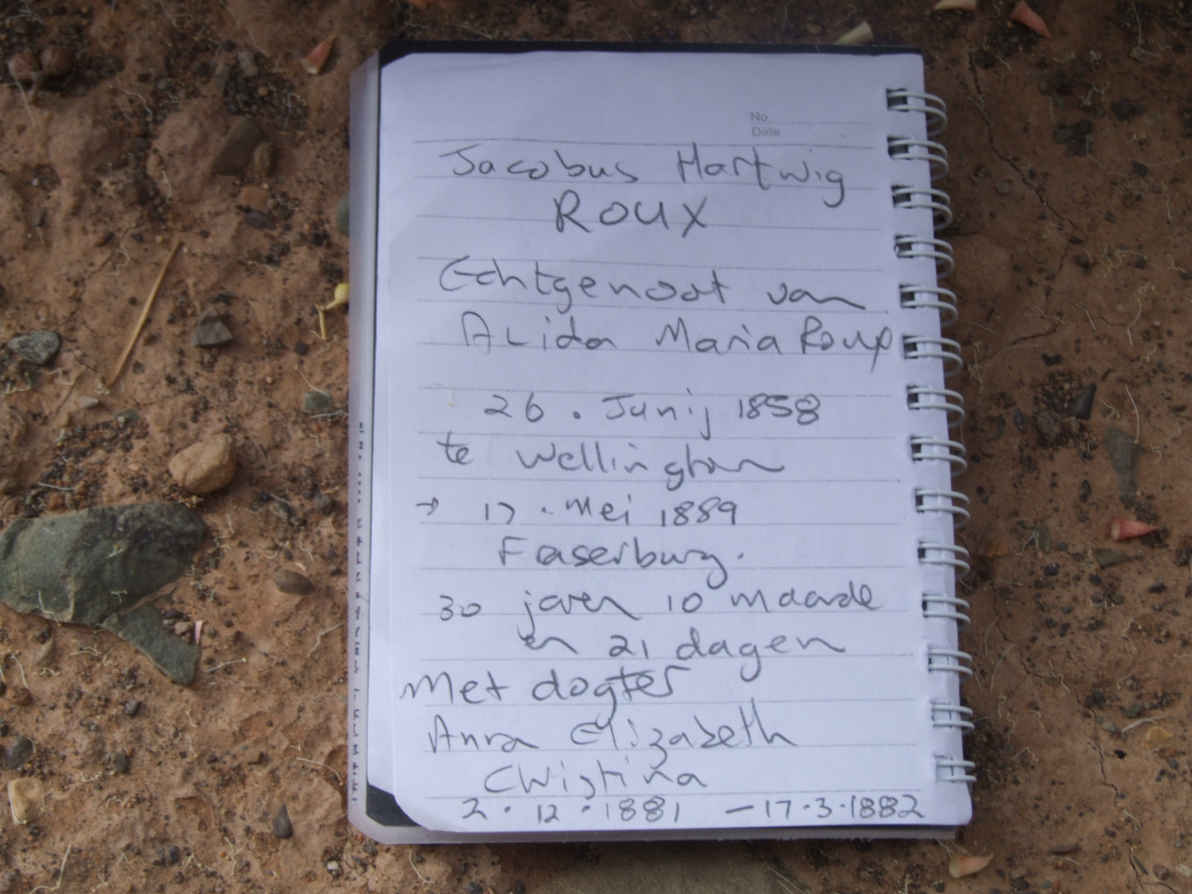 No.
Date
Jacobus Hartwig
ROUX
Echtgenoot van
ALida Maria Roux
26. Junij 1858
te Wellington
→ 17. Mei 1889
Faserburg.
30 jaren 10 maande
en 21 dagen
Met dogter
Anna Elizabeth
Christina
2.12.1881 - 17.3.1882